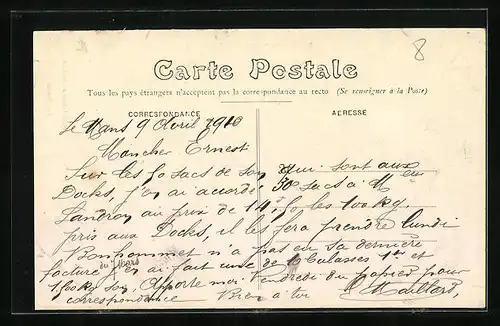 8
Carte Postale
Tous les pays étrangers n'acceptent pas la correspondance au recto (Se renseigner à la Poste)
CORRESPONDANCE
ADRESSE
Le Mans 9 Avril 1910
Mon cher Ernest
Sur les 50 sacs de son qui sont aux
Docks, j'en ai accordé 30 sacs à Mr
Landron au prix de 14 f les 100 kg.
pris aux Docks, il les fera prendre lundi
Bonhommet n'a pas eu sa dernière
facture du Mars j'en ai fait une de et
1500 kg son, Apporte moi Vendredi du papier pour
correspondance Bien à toi Maillard,